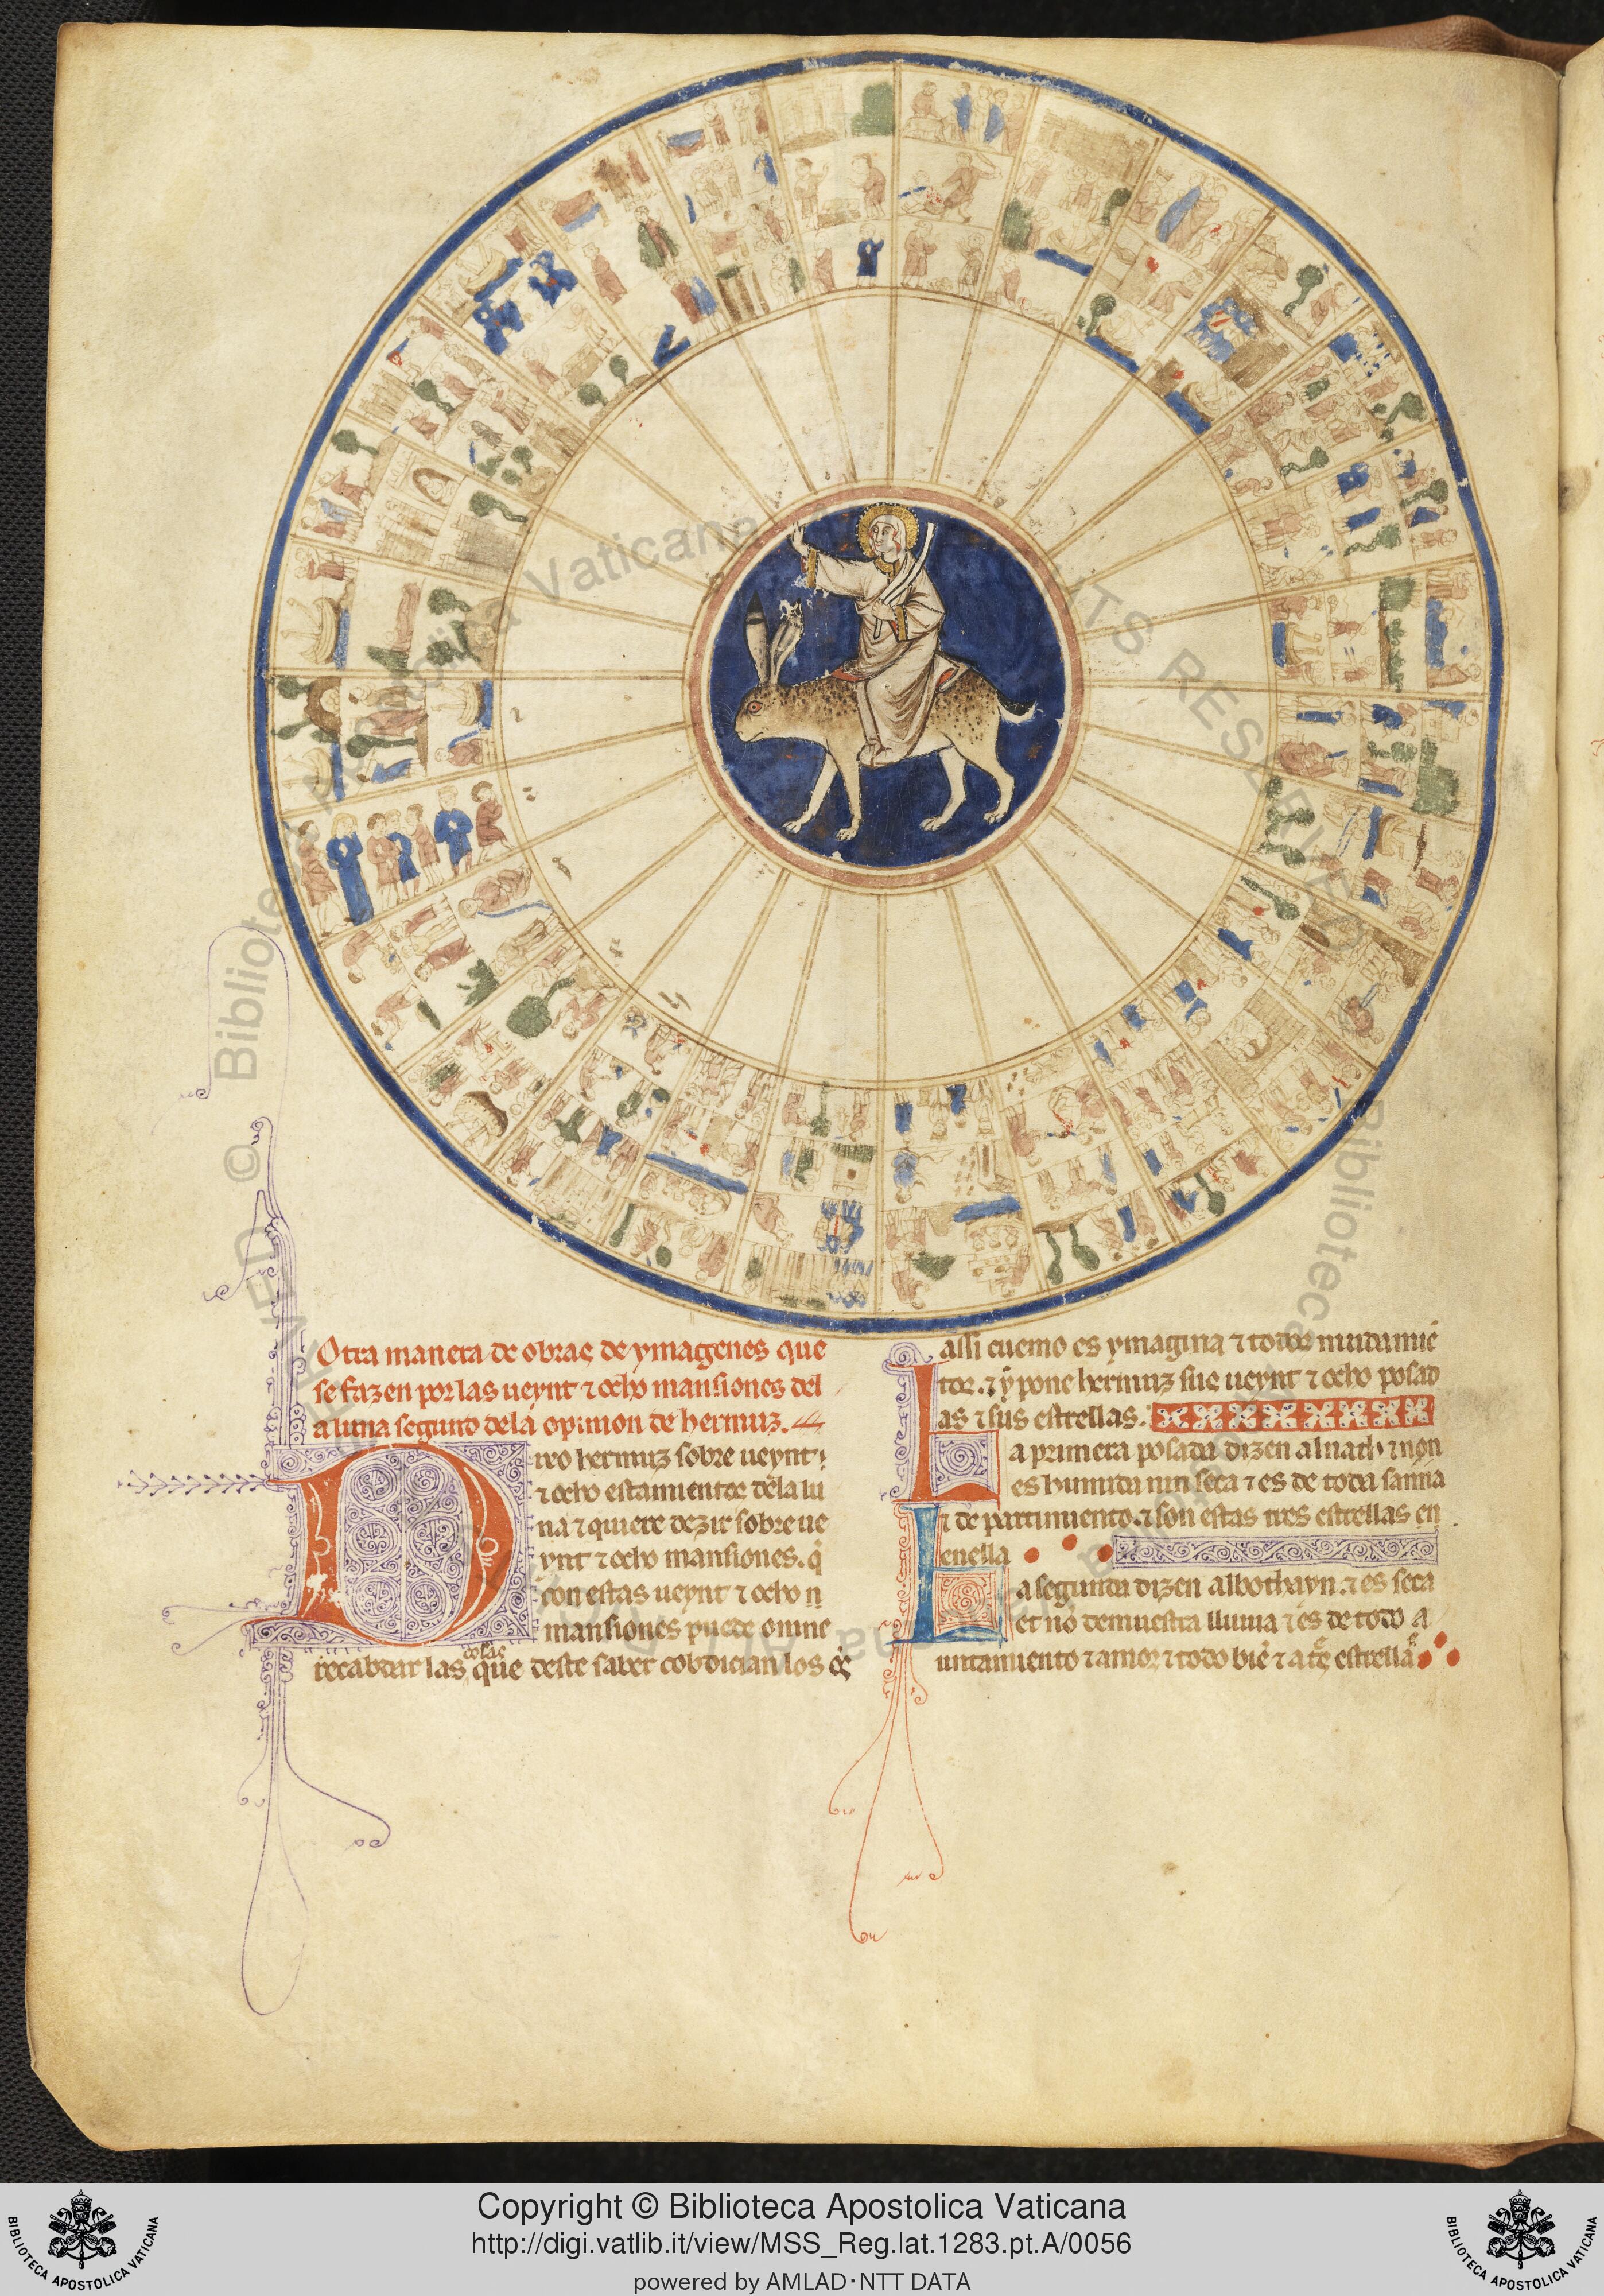 Otra manera de obras de ymagenes que
se fazen por las ueynt ⁊ ocho mansiones del
a luna segund dela opinion de hermuz.
Dixo hermuz sobre ueynt
⁊ ocho estamientos dela lu
na ⁊ quiere dezir sobre ue
ynt ⁊ ocho mansiones. q̇
con estas ueynt ⁊ ocho
mansiones puede omne
cosas
recabdar las que deste saber cobdician los
assi cuemo es ymagina ⁊ todos mudamiē
tos. ⁊ y pone hermuz sus ueynt ⁊ ocho posad
as ⁊ sus estrellas.
La primera posada dizen alnath ⁊ non
es humida nin seca ⁊ es de toda sanna
⁊ de partimiento. ⁊ son estas tres estrellas en
enella
La segunda dizen albothayn. ⁊ es seca
et nō demuestra lluuia ⁊ es de todo a
iuntamiento ⁊ amor ⁊ todo biē ⁊ estrella
© Biblioteca Apostolica Vaticana
RIGHTS RESERVED
Copyright © Biblioteca Apostolica Vaticana
http://digi.vatlib.it/view/MSS_Reg.lat.1283.pt.A/0056
powered by AMLAD·NTT DATA
BIBLIOTECA APOSTOLICA VATICANA
BIBLIOTECA APOSTOLICA VATICANA